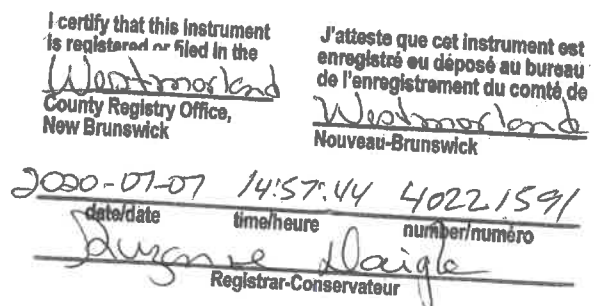 I certify that this instrument
is registered or filed in the
Westmorland
County Registry Office,
New Brunswick
J'atteste que cet instrument est
enregistré ou déposé au bureau
de l'enregistrement du comté de
Westmorland
Nouveau-Brunswick
2020-07-07 14:57:44 40221591
date/date time/heure number/numéro
Suzanne Daigle
Registrar-Conservateur